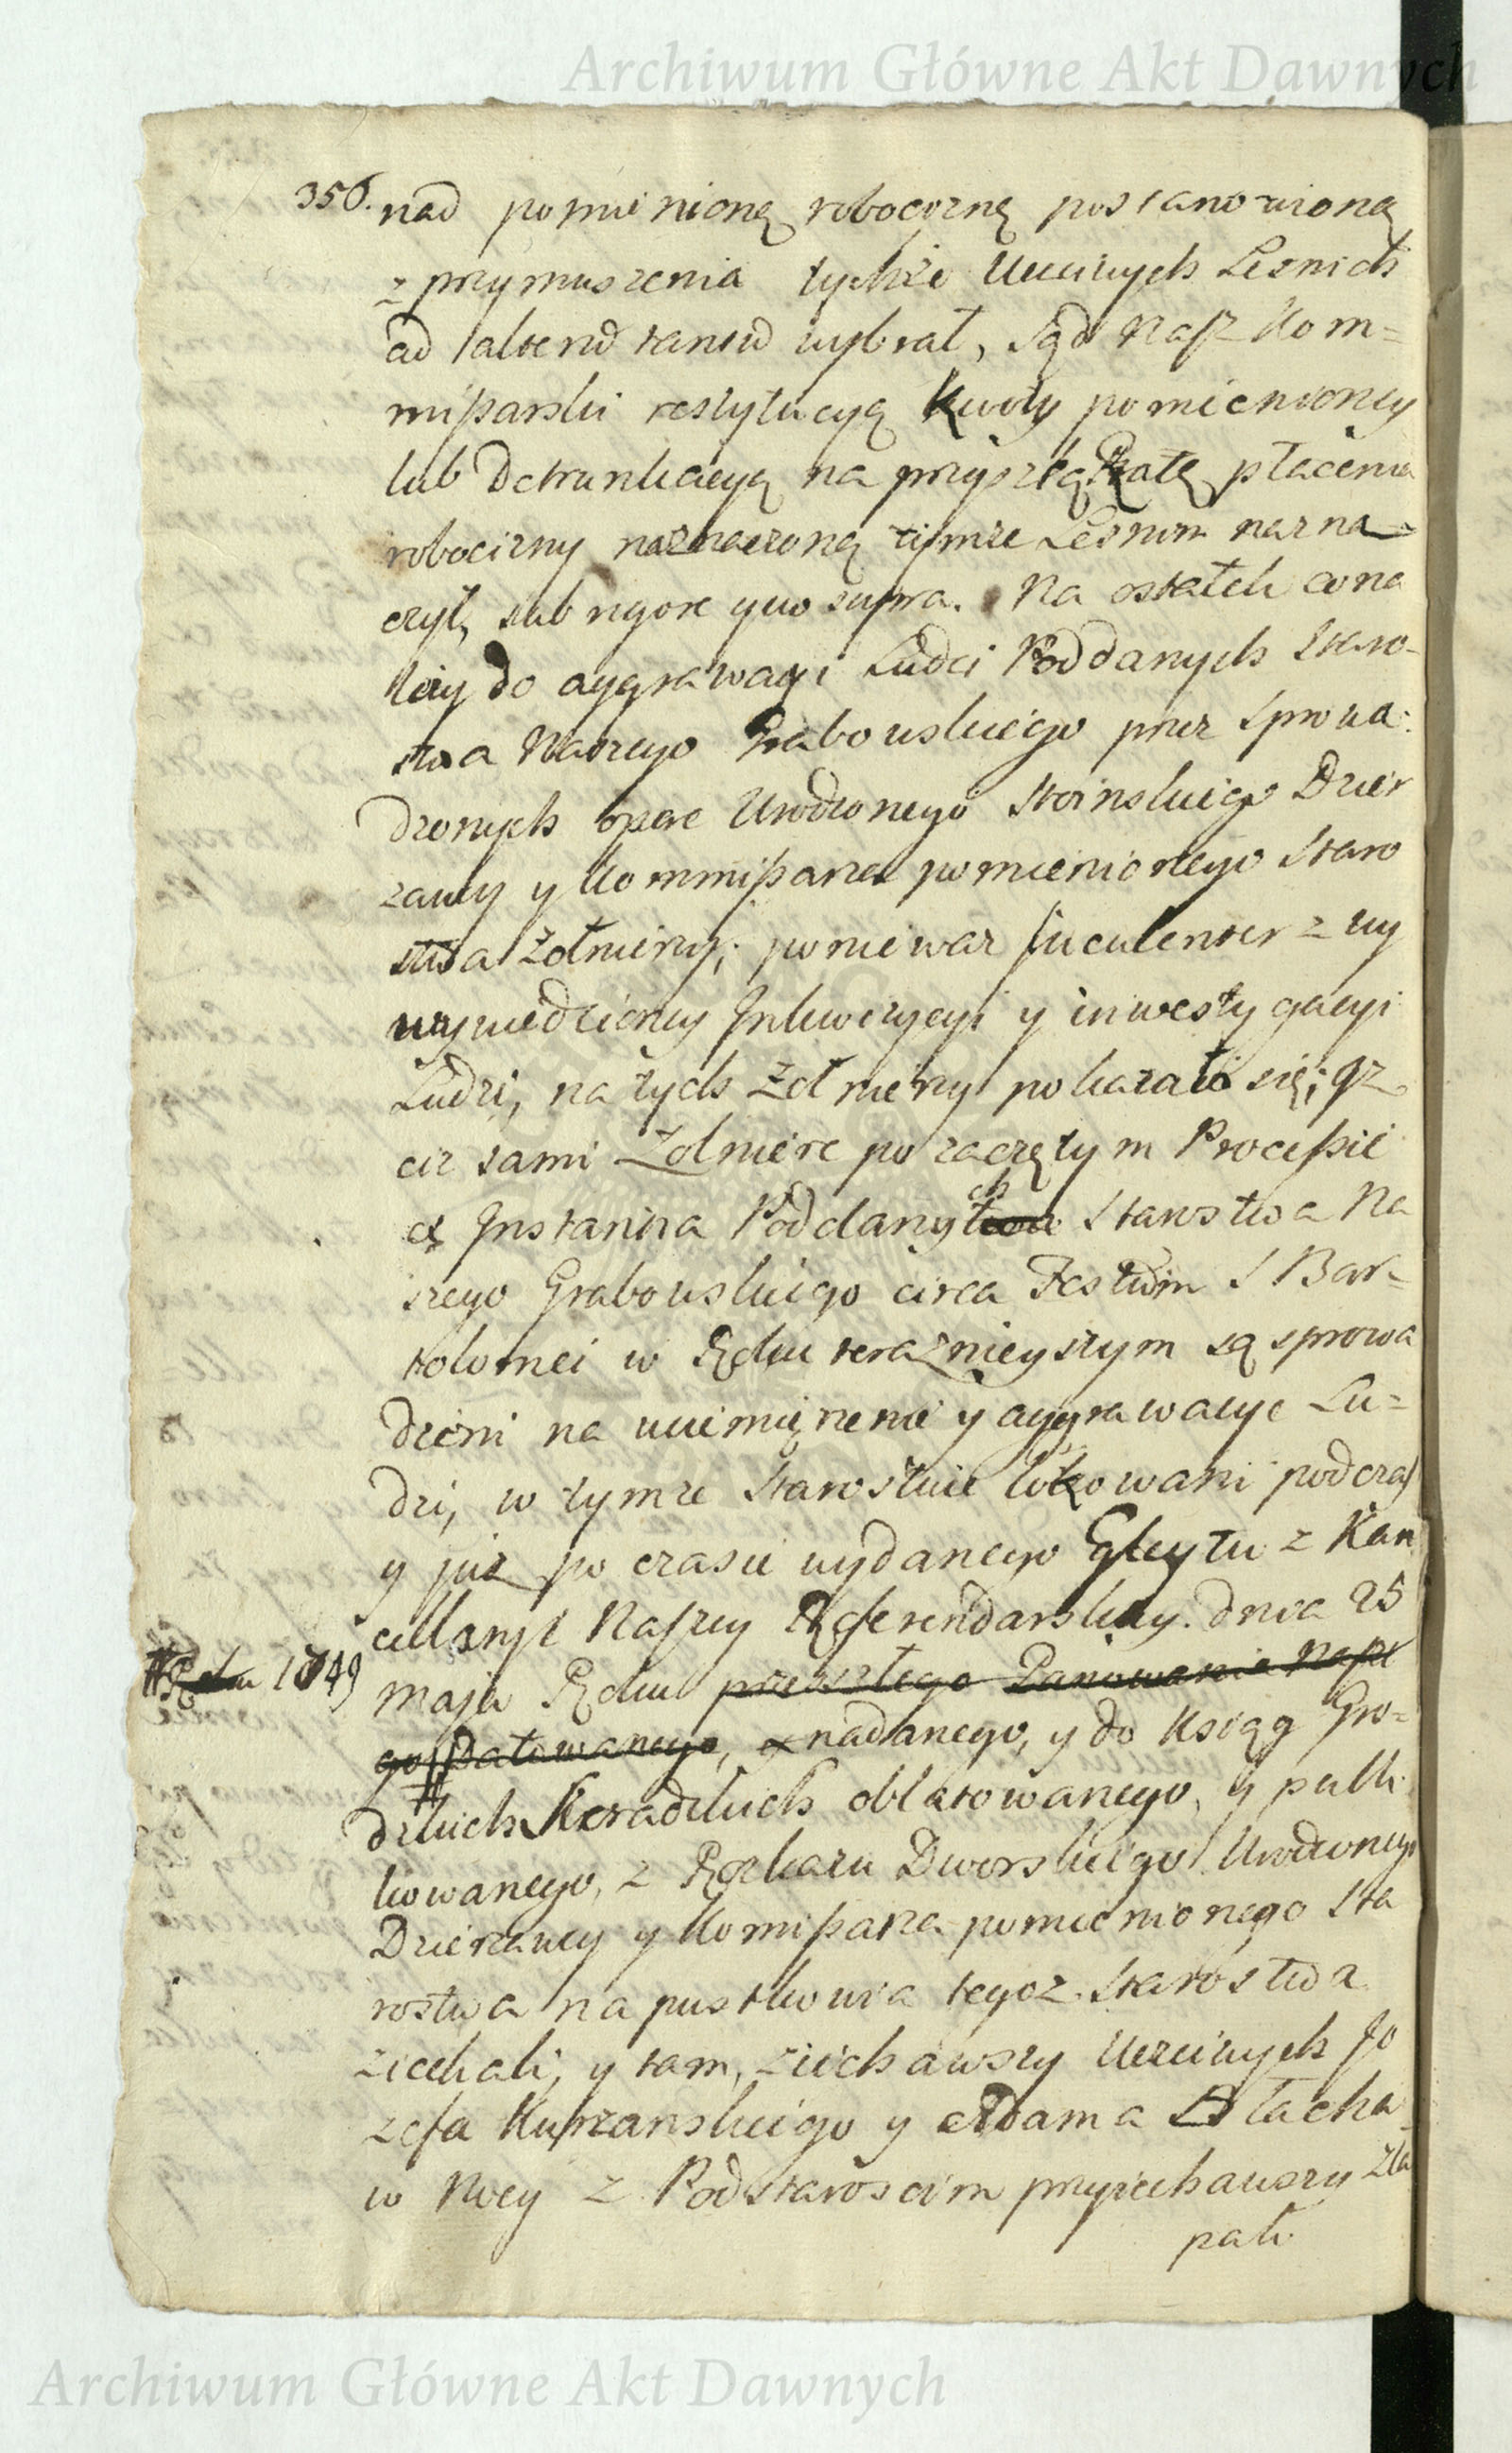 Archiwum Główne Akt Dawnych
356. nad pomienioną robociznę postanowioną
z przymuszenia tychże Uczciwych Lesnich
ad altendtantud wybrał, Sąd Nasz Kom=
missarski restytucyą kwoty pomienioney
lub Detrunkacyą na przyszłą Ratę płacenia
robocizny naznaczoną tymże Lesnim nazna=
czył, sub rigore quo supra. Na ostatek co na
leży do aggrawacyi Ludzi Poddanych Staro-
stwa Naszego Grabowskiego przez Sprowa-
dzonych opere Urodzonego Stoinskiego Dzier
zawcy y Kommissarza pomienionego Staro
stwa Zołnierzy; poniewaz luculenter z wy
wywiedzioney Inkwizycyi y inwestygacyi
Ludzi, na tych Zołnierzy pokazało się; iz
ciz sami Zolnierze po zaczętym Processie
ex Instantia Poddanych Starostwa Na
szego Grabowskiego circa Festum S Bar-
tolomei w Roku teraznieyszym są sprowa
dzeni na uciemięzenie y aggrawacye Lu=
dzi, w tymze Starostwie lokowani podczas
y juz po czasie wydanego Gleytu z Kan
cellaryi Naszey Referendarskiey. dnia 25
#Roku 1749
maja Roku przeszłego Panowania Nasze
go Datowanego, nadanego, y do Ksiąg Gro=
dzkich Sieradzkich oblatowanego, y publi
kowanego, z Rozkazu Dworskiego Urodzonego
Dzierzawcy y Komissarza pomienionego Sta
rostwa na pustkowia tegoz Starostwa
ziechali; y tam, ziechawszy Uczciwych Jo
zefa Kuprzanskiego y Adama Stacha
w Nocy z Podstaroscim przyiechawszy zła
pali
Archiwum Główne Akt Dawnych